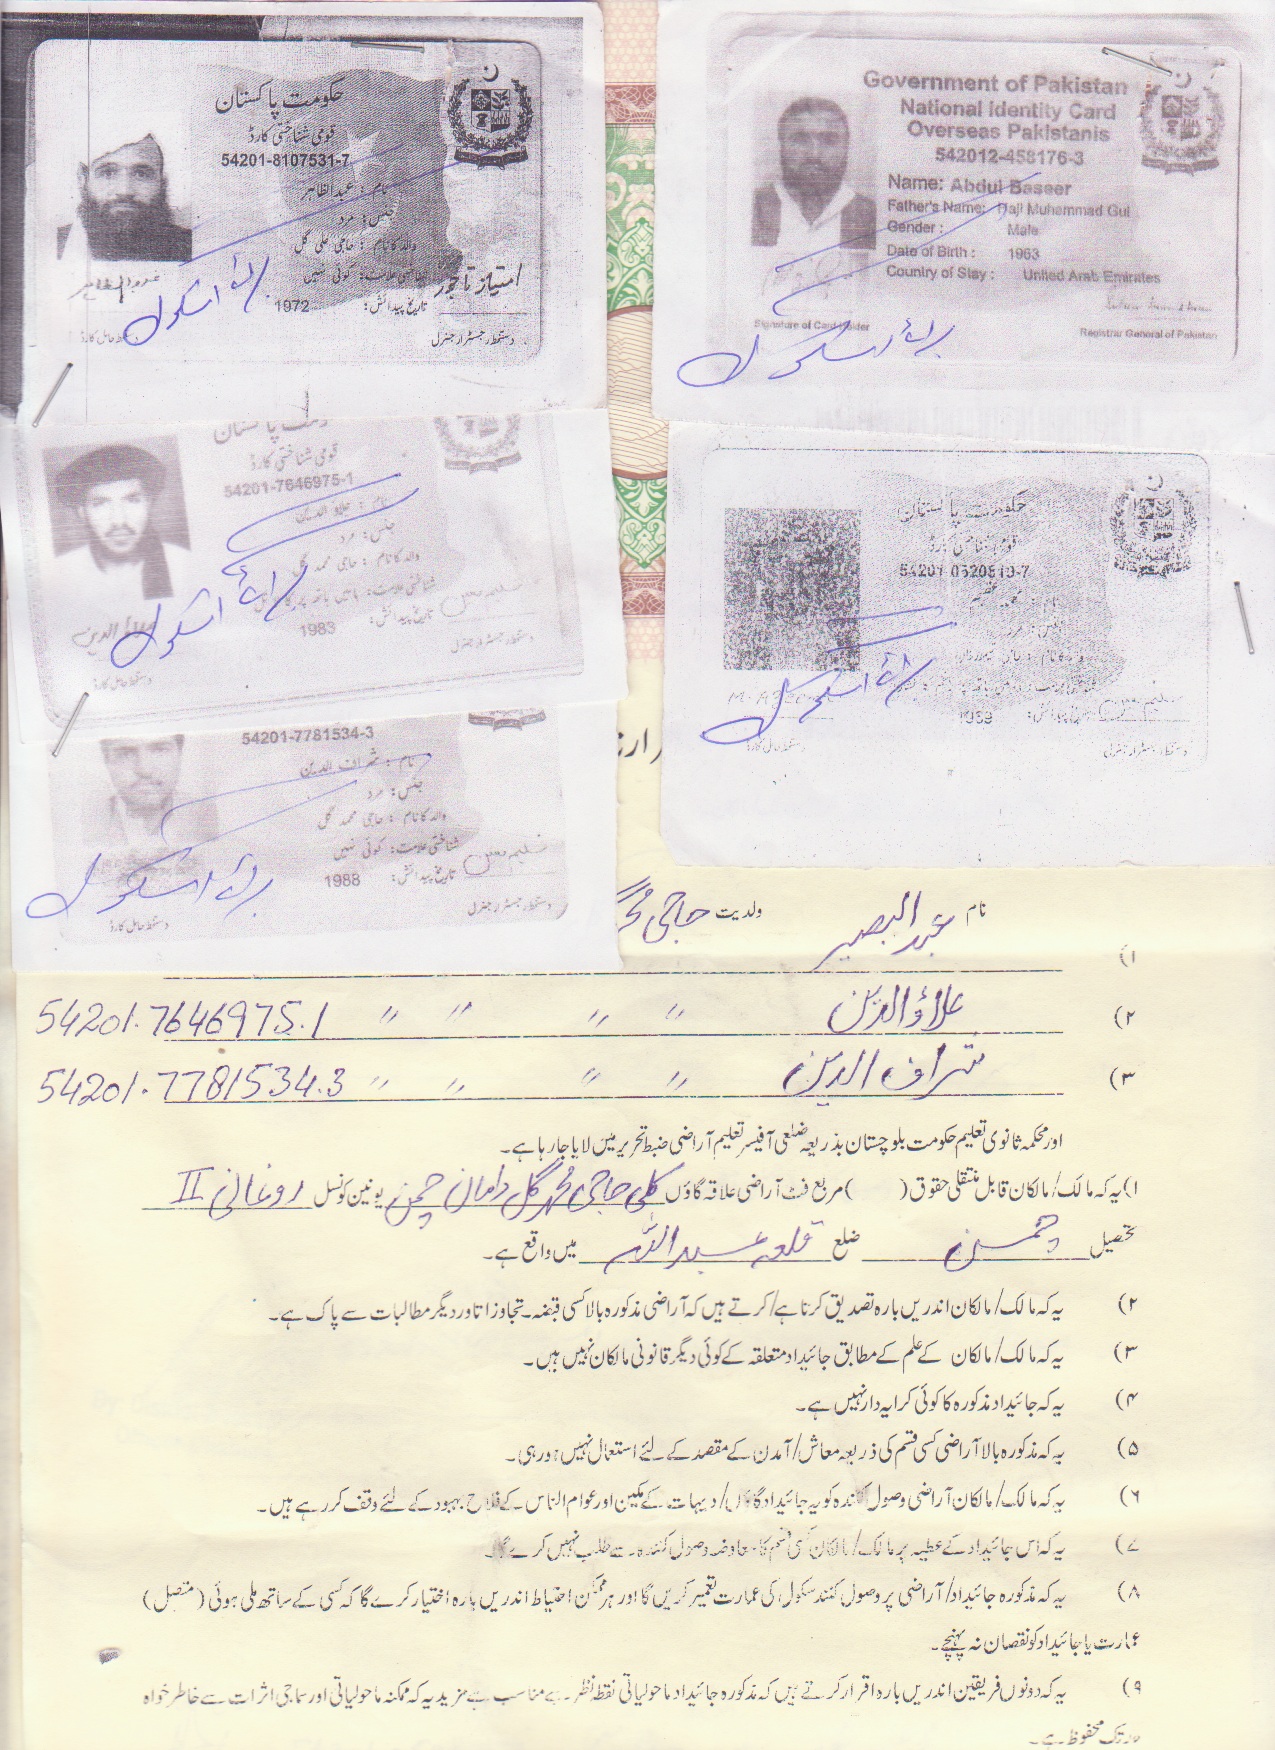 حکومت پاکستان
قومی شناختی کارڈ
54201-8107531-7
نام : عبدالظاہر
جنس : مرد
والد کا نام : حاجی علی گل
شناختی علامت : کوئی نہیں
تاریخ پیدائش : 1972
امتیاز تاجور
دستخط رجسٹرار جنرل
دستخط حامل کارڈ
برائے اسکول
Government of Pakistan
National Identity Card
Overseas Pakistanis
542012-458176-3
Name: Abdul Baseer
Father's Name: Haji Muhammad Gul
Gender : Male
Date of Birth : 1963
Country of Stay : United Arab Emirates
Signature of Card Holder
Registrar General of Pakistan
برائے اسکول
پاکستان
قومی شناختی کارڈ
54201-7646975-1
نام : علاؤ الدین
جنس : مرد
والد کا نام : حاجی محمد گل
شناختی علامت : بائیں ہاتھ پر
تاریخ پیدائش : 1983
علاؤالدین
دستخط رجسٹرار جنرل
دستخط حامل کارڈ
برائے اسکول
حکومت پاکستان
قومی شناختی کارڈ
54201-0320819-7
نام : محمد عظیم
جنس : مرد
والد کا نام : حاجی
تاریخ پیدائش : 1969
دستخط رجسٹرار جنرل
دستخط حامل کارڈ
برائے اسکول
54201-7781534-3
نام : شراف الدین
جنس : مرد
والد کا نام : حاجی محمد گل
شناختی علامت : کوئی نہیں
تاریخ پیدائش : 1988
دستخط رجسٹرار جنرل
دستخط حامل کارڈ
برائے اسکول
نام عبدالبصیر ولدیت حاجی محمد
۱)
۲) علاؤالدین 〃 〃 〃 〃 54201.7646975.1
۳) شراف الدین 〃 〃 〃 〃 54201.7781534.3
اور محکمہ ثانوی تعلیم حکومت بلوچستان بذریعہ ضلعی آفیسر تعلیم آراضی ضبط تحریر میں لایا جا رہا ہے۔
۱) یہ کہ مالک/مالکان قابل منتقلی حقوق ( ) مربع فٹ آراضی علاقہ گاؤں کلی حاجی محمد گل دامان چمن یونین کونسل روغانی II
تحصیل چمن ضلع قلعہ عبداللہ میں واقع ہے۔
۲) یہ کہ مالک/مالکان اندریں بارہ تصدیق کرتا ہے/کرتے ہیں کہ آراضی مذکورہ بالا کسی قبضہ۔ تجاوزات اور دیگر مطالبات سے پاک ہے۔
۳) یہ کہ مالک/مالکان کے علم کے مطابق جائیداد متعلقہ کے کوئی دیگر قانونی مالکان نہیں ہیں۔
۴) یہ کہ جائیداد مذکورہ کا کوئی کرایہ دار نہیں ہے۔
۵) یہ کہ مذکورہ بالا آراضی کسی قسم کی ذریعہ معاش/آمدن کے مقصد کے لئے استعمال نہیں ہو رہی۔
۶) یہ کہ مالک/مالکان آراضی وصول کنندہ کو یہ جائیداد گاؤں/دیہات کے مکین اور عوام الناس کے فلاح بہبود کے لئے وقف کر رہے ہیں۔
۷) یہ کہ اس جائیداد کے عطیہ پر مالک/مالکان کسی قسم کا معاوضہ وصول کنندہ سے طلب نہیں کرے گا۔
۸) یہ کہ مذکورہ جائیداد/آراضی پر وصول کنند سکول کی عمارت تعمیر کریں گا اور ہر ممکن احتیاط اندریں بارہ اختیار کرے گا کہ کسی کے ساتھ ملی ہوئی (متصل)
عمارت یا جائیداد کو نقصان نہ پہنچے۔
۹) یہ کہ دونوں فریقین اندریں بارہ اقرار کرتے ہیں کہ مذکورہ جائیداد ماحولیاتی نقطہ نظر سے مناسب ہے مزید یہ کہ ممکنہ ماحولیاتی اور سماجی اثرات سے خاطر خواہ
حد تک محفوظ ہے۔